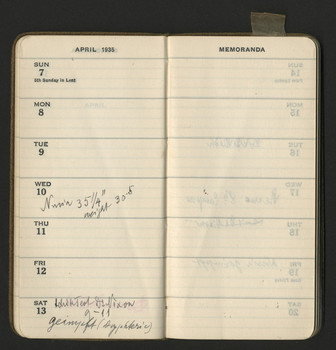 APRIL 1935
SUN
7
5th Sunday in Lent
MON
8
TUE
9
WED
10
35 1/4"
weight 30.8
THU
11
FRI
12
SAT
13
9-11
geimpft (Dyphterie)
MEMORANDA